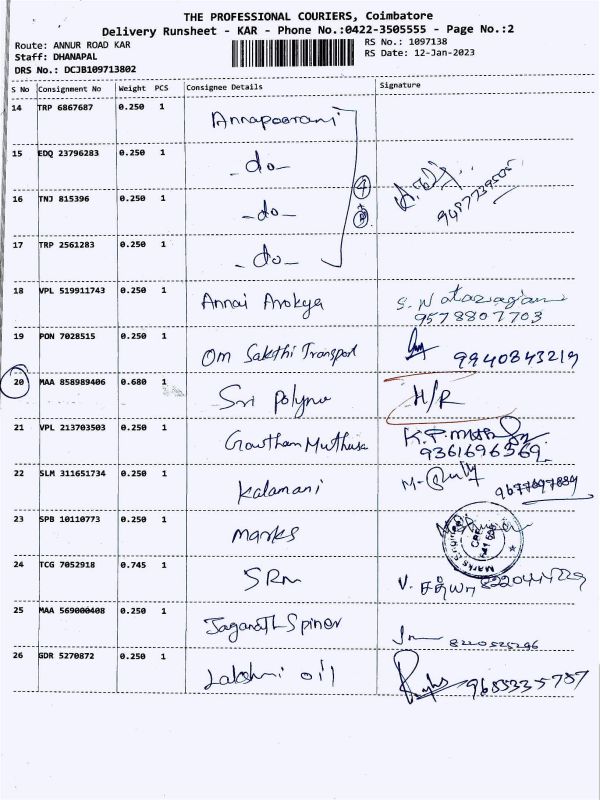 THE PROFESSIONAL COURIERS, Coimbatore
Delivery Runsheet - KAR - Phone No.:0422-3505555 - Page No.:2
Route: ANNUR ROAD KAR
Staff: DHANAPAL
DRS No.: DCJB109713802
RS No.: 1097138
RS Date: 12-Jan-2023
S No Consignment No Weight PCS Consignee Details Signature
14 TRP 6867687 0.250 1 Annapoorani
15 EDQ 23796283 0.250 1 -do-
4
16 TNJ 815396 0.250 1 -do-
17 TRP 2561283 0.250 1 -do-
18 VPL 519911743 0.250 1 Annai Arokya S. Natarajan
9578807703
19 PON 7028515 0.250 1 Om Sakthi Transport 9940843219
20 MAA 858989406 0.680 1 Sri Polyma H/R
21 VPL 213703503 0.250 1 Gowtham Muthusa K.P.
9361696569
22 SLM 311651734 0.250 1 Kalamani M-
9677697889
23 SPB 10110773 0.250 1 Marks
24 TCG 7052918 0.745 1 SRM V.
25 MAA 569000408 0.250 1 Jaganath Spiner
8220525296
26 GDR 5270872 0.250 1 Lakshmi oil 9655335787